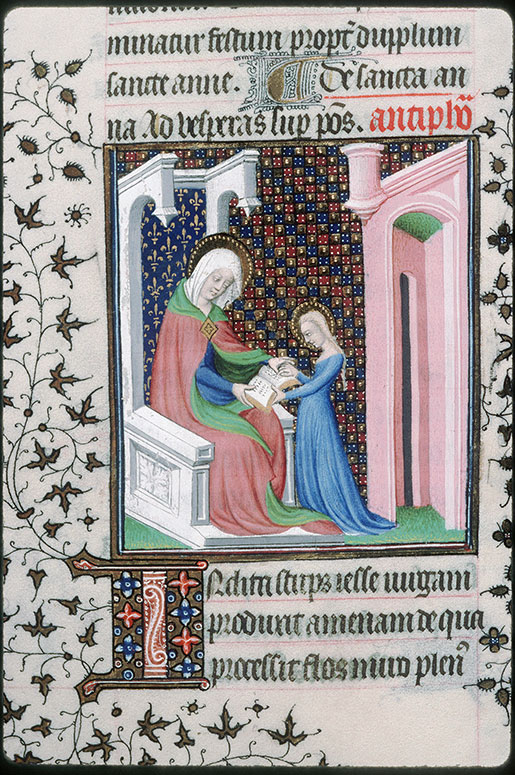 minatur festum propt̄ dupplum
sancte anne. De sancta an
na Ad vesperas sup ps̄. antiphō
Inclita stirps iesse uirgam
produxit amenam de qua
processit flos miro plen⁹